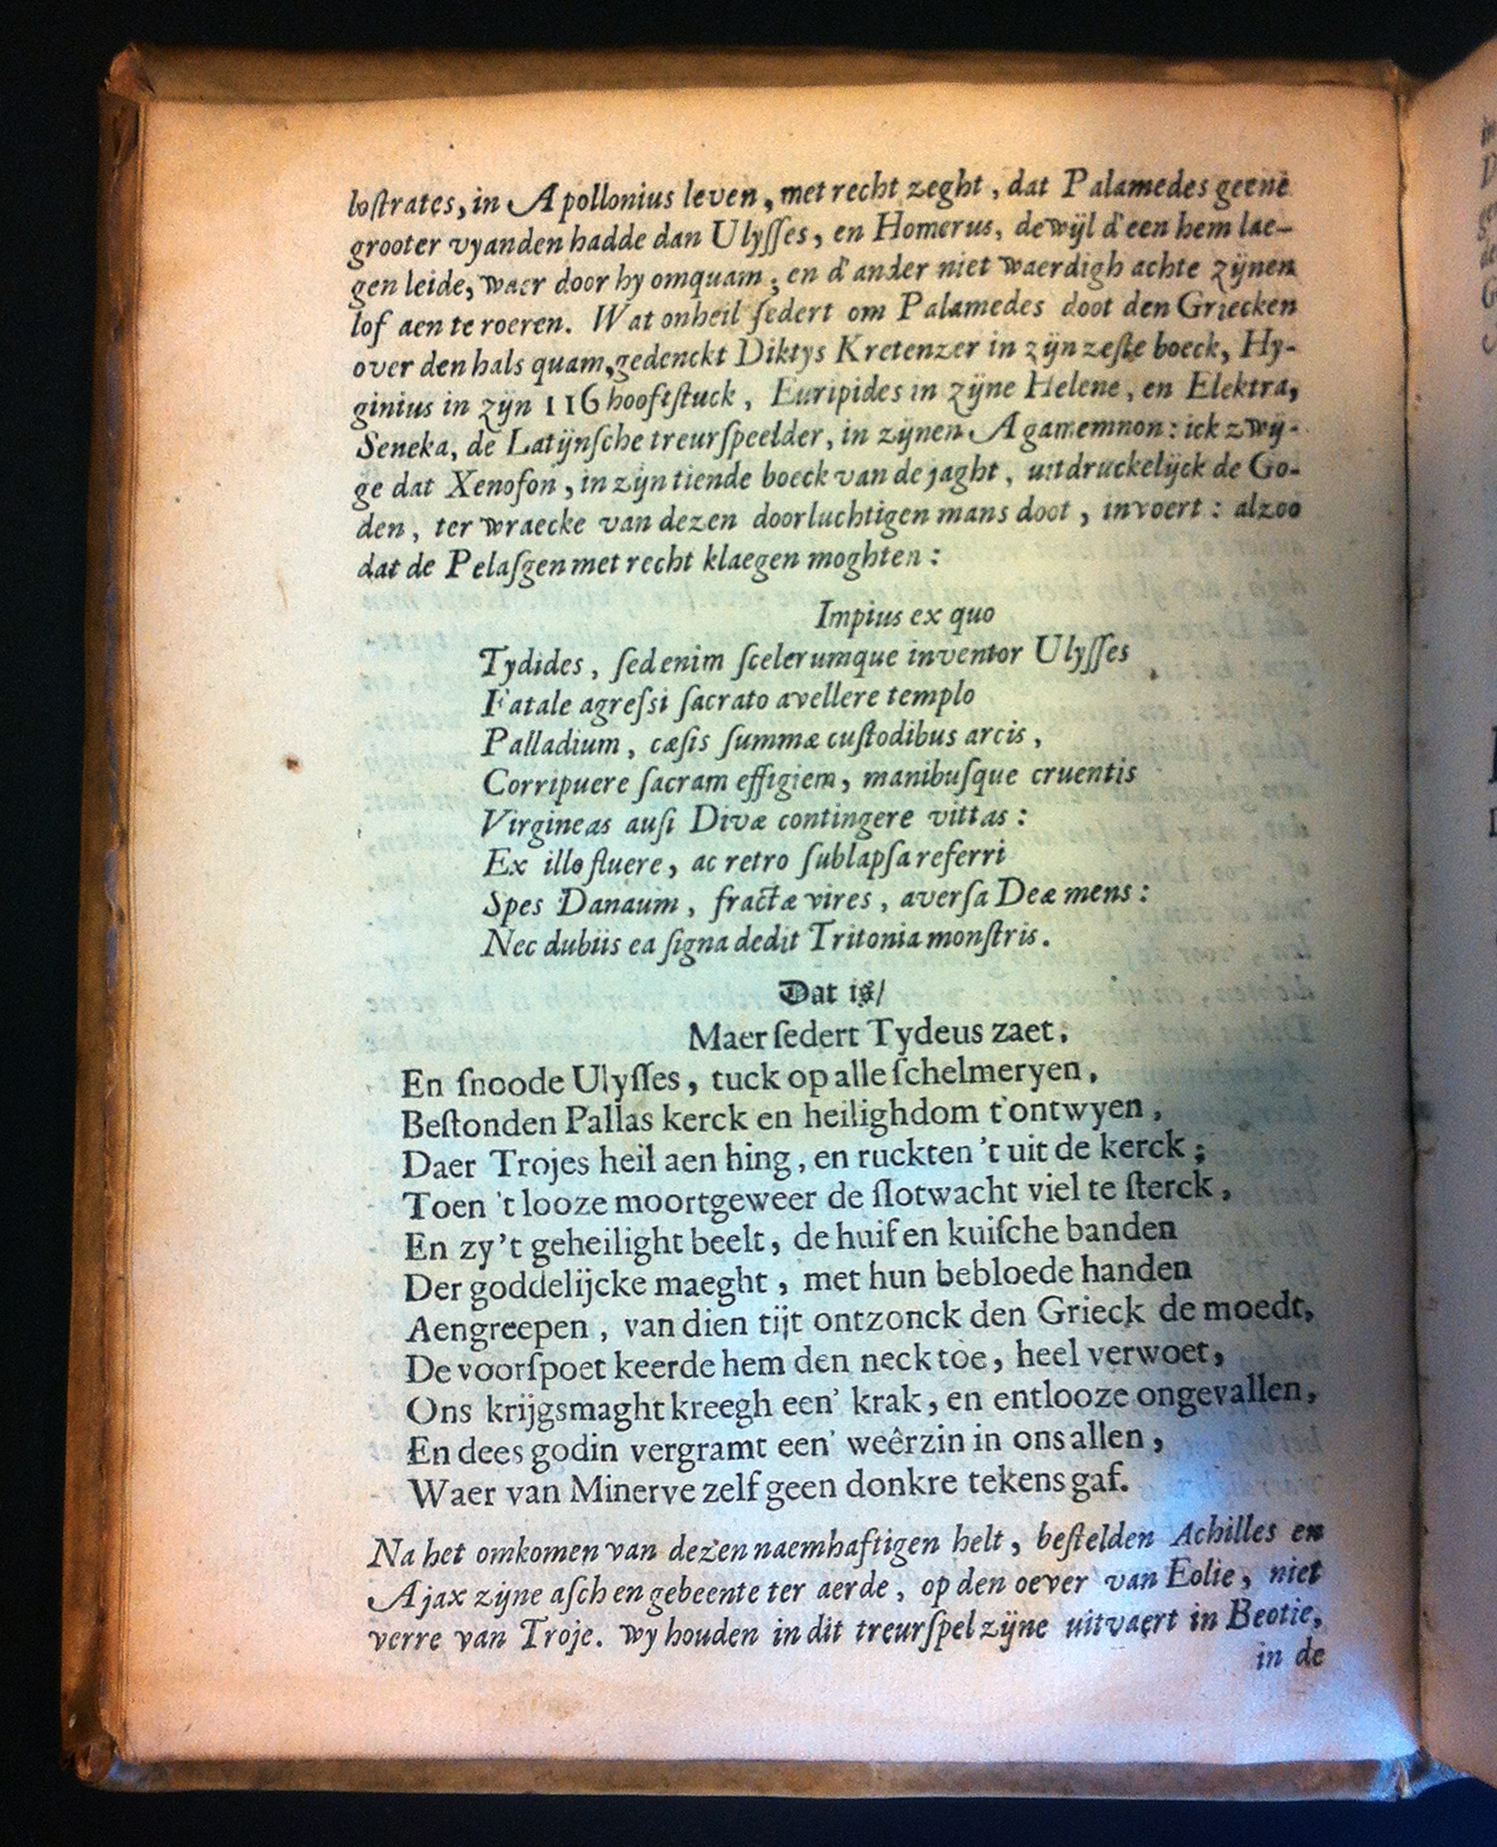 loſtrates, in Apollonius leven, met recht zeght, dat Palamedes geene
grooter vyanden hadde dan Ulyſſes, en Homerus, dewijl d'een hem lae-
gen leide, waer door hy omquam; en d'ander niet waerdigh achte zijnen
lof aen te roeren. Wat onheil ſedert om Palamedes doot den Griecken
over den hals quam, gedenckt Diktys Kretenzer in zijn zeſte boeck, Hy-
ginius in zijn 116 hooftſtuck, Euripides in zijne Helene, en Elektra,
Seneka, de Latijnſche treurſpeelder, in zijnen Agamemnon: ick zwij-
ge dat Xenofon, in zijn tiende boeck van de jaght, uitdruckelijck de Go-
den, ter wraecke van dezen doorluchtigen mans doot, invoert: alzoo
dat de Pelaſgen met recht klaegen moghten:
Impius ex quo
Tydides, ſed enim ſcelerumque inventor Ulyſſes
Fatale agreſsi ſacrato avellere templo
Palladium, cæſis ſummæ cuſtodibus arcis,
Corripuere ſacram effigiem, manibuſque cruentis
Virgineas auſi Divæ contingere vittas:
Ex illo fluere, ac retro ſublapſa referri
Spes Danaum, fractæ vires, averſa Deæ mens:
Nec dubiis ea ſigna dedit Tritonia monſtris.
Dat is/
Maer ſedert Tydeus zaet,
En ſnoode Ulyſſes, tuck op alle ſchelmeryen,
Beſtonden Pallas kerck en heilighdom t'ontwyen,
Daer Trojes heil aen hing, en ruckten 't uit de kerck;
Toen 't looze moortgeweer de ſlotwacht viel te ſterck,
En zy 't geheilight beelt, de huif en kuiſche banden
Der goddelijcke maeght, met hun bebloede handen
Aengreepen, van dien tijt ontzonck den Grieck de moedt,
De voorſpoet keerde hem den neck toe, heel verwoet,
Ons krijgsmaght kreegh een' krak, en entlooze ongevallen,
En dees godin vergramt een' weêrzin in ons allen,
Waer van Minerve zelf geen donkre tekens gaf.
Na het omkomen van dezen naemhaftigen helt, beſtelden Achilles en
Ajax zijne aſch en gebeente ter aerde, op den oever van Eolie, niet
verre van Troje. Wy houden in dit treurſpel zijne uitvaert in Beotie,
in de